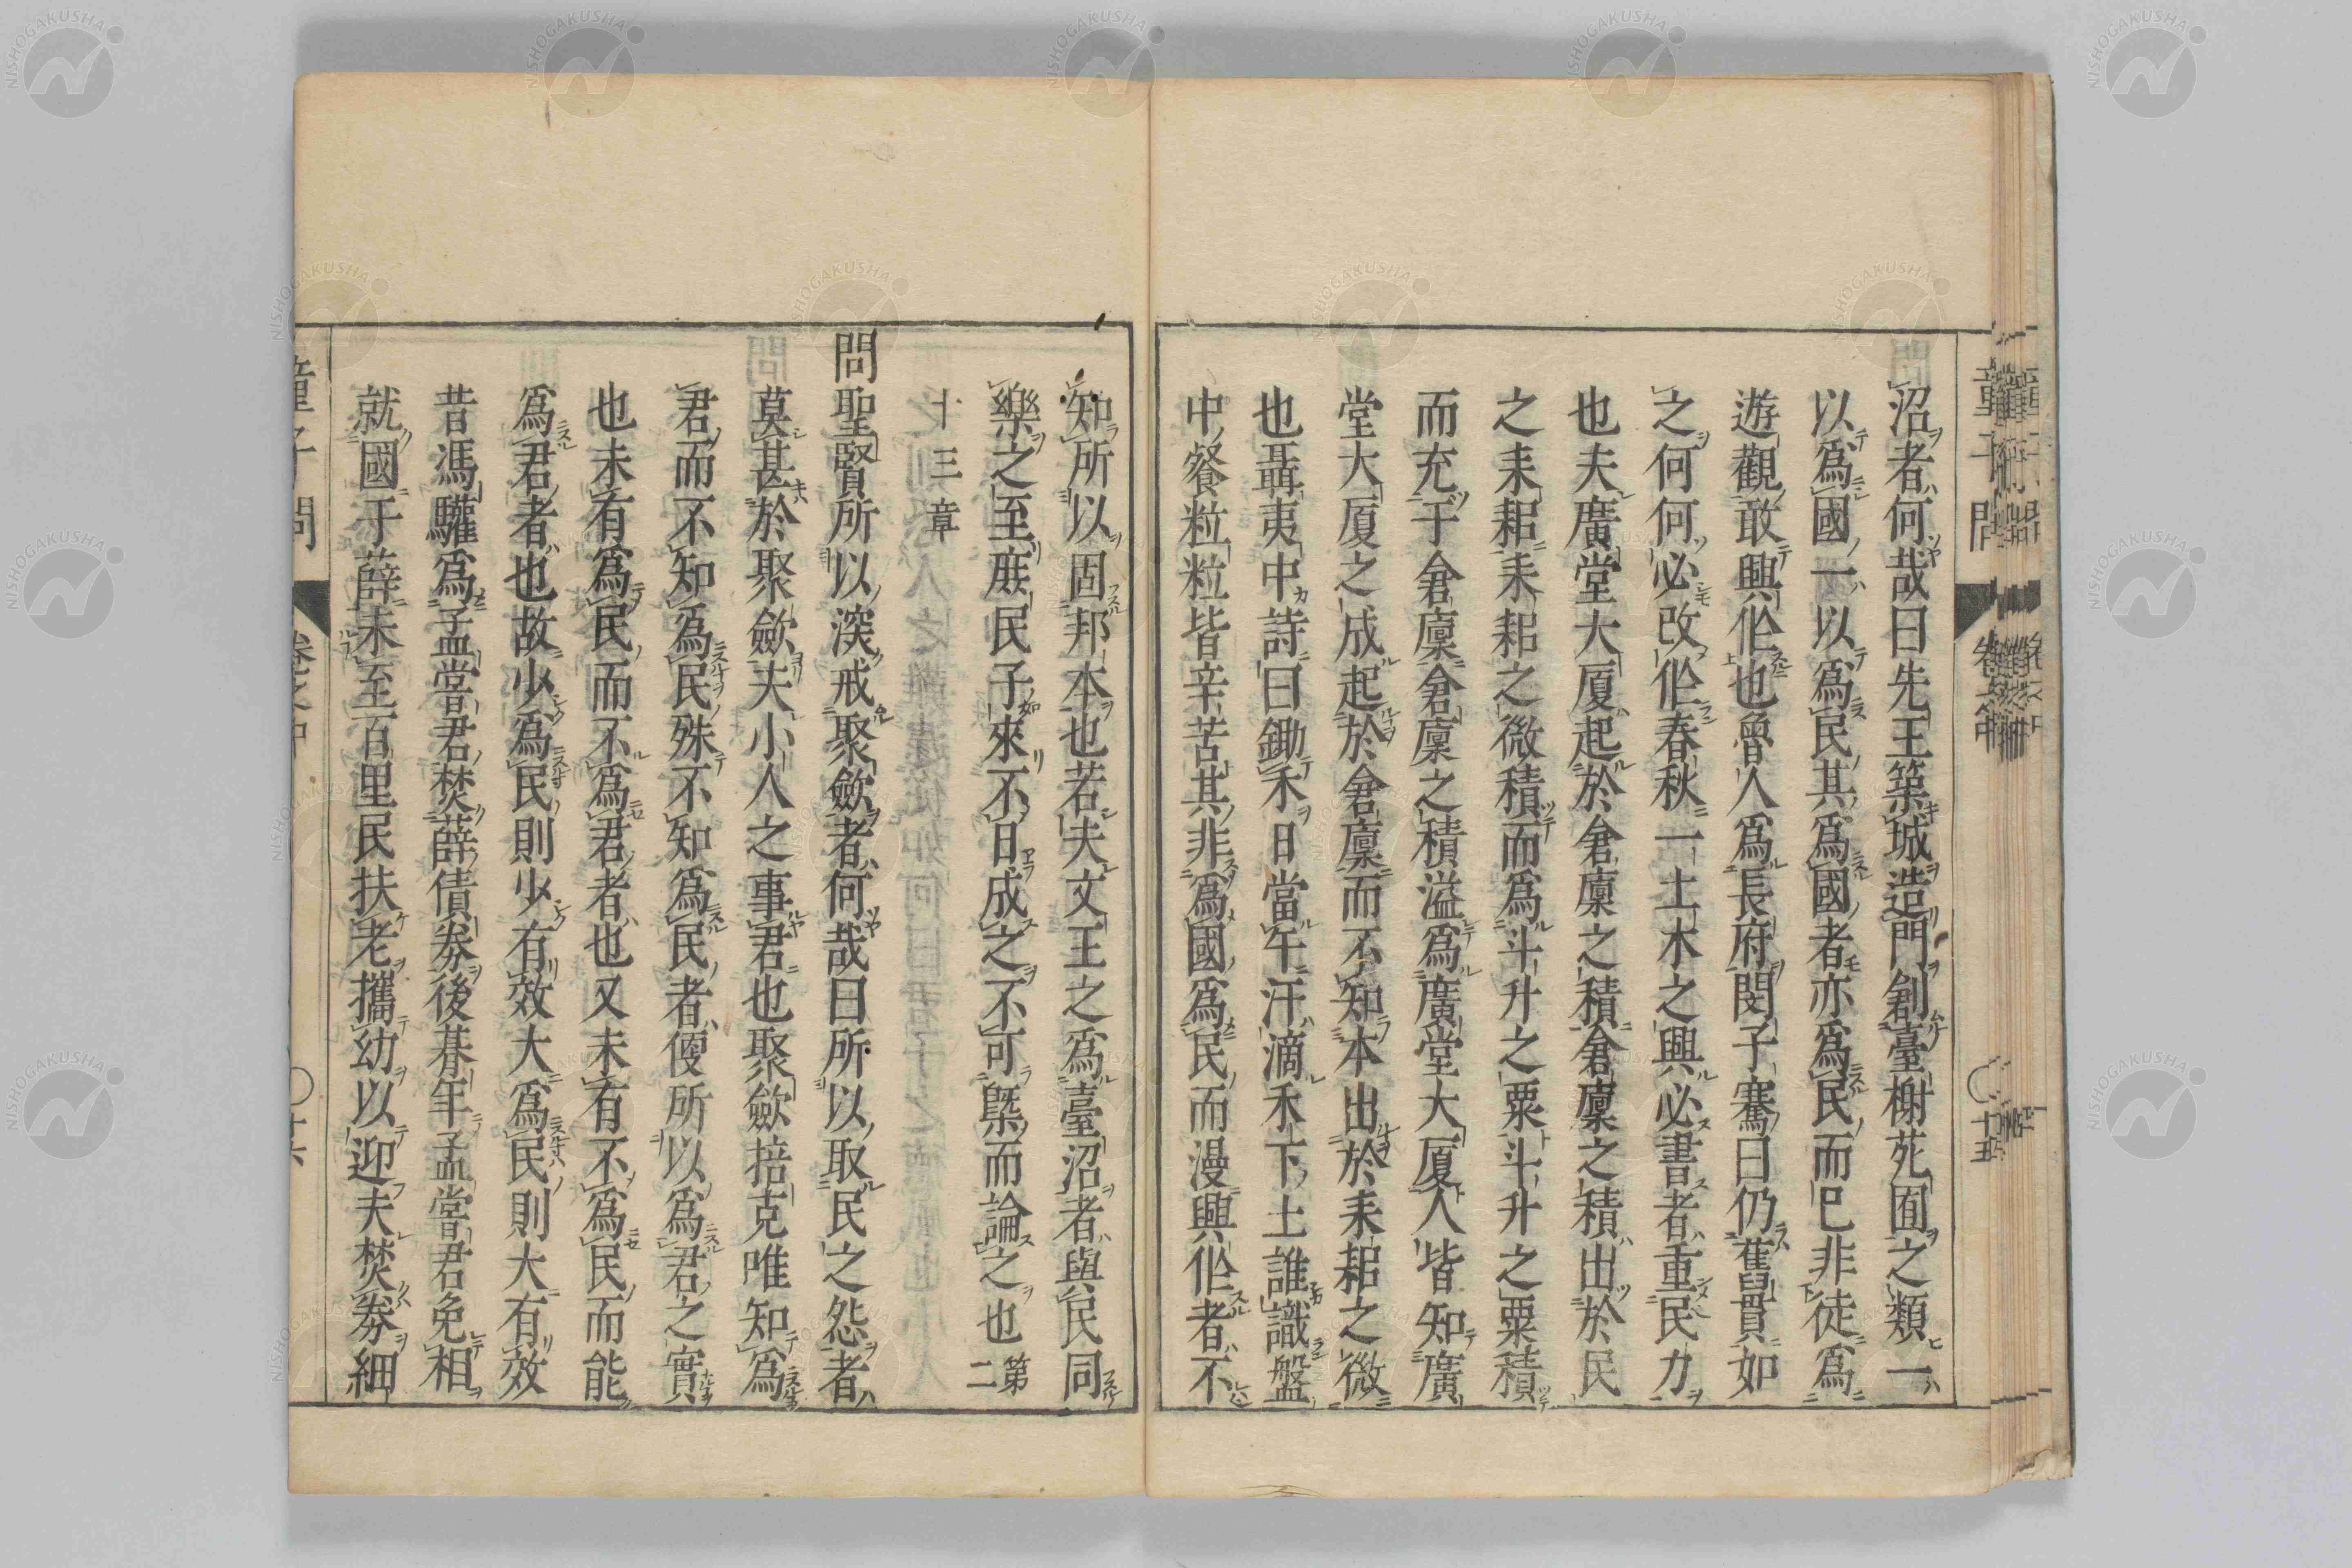 沼者何哉曰先王築城造門創臺榭苑囿之類一
以爲國一以爲民其爲國者亦爲民而已非徒爲
遊觀敢興作也魯人爲長府閔子騫曰仍舊貫如
之何何必改作春秋一土木之興必書者重民力
也夫廣堂大厦起於倉廩之積倉廩之積出於民
之耒耜耒耜之微積而爲斗升之粟斗升之粟積
而充于倉廩倉廩之積溢爲廣堂大厦人皆知廣
堂大厦之成起於倉廩而不知本出於耒耜之微
也聶夷中詩曰鋤禾日當午汗滴禾下土誰識盤
中餐粒粒皆辛苦其非爲國爲民而漫興作者不
知所以固邦本也若夫文王之爲臺沼者與民同
樂之至庶民子來不日成之不可槩而論之也第二
十三章
問聖賢所以深戒聚斂者何哉曰所以取民之怨者
莫甚於聚斂夫小人之事君也聚斂掊克唯知爲
君而不知爲民殊不知爲民者便所以爲君之實
也未有爲民而不爲君者也又未有不爲民而能
爲君者也故少爲民則少有效大爲民則大有效
昔馮驩爲孟嘗君焚薛債券後朞年孟嘗君免相
就國于薛未至百里民扶老攜幼以迎夫焚券細
童子問 卷之中
NISHOGAKUSHA